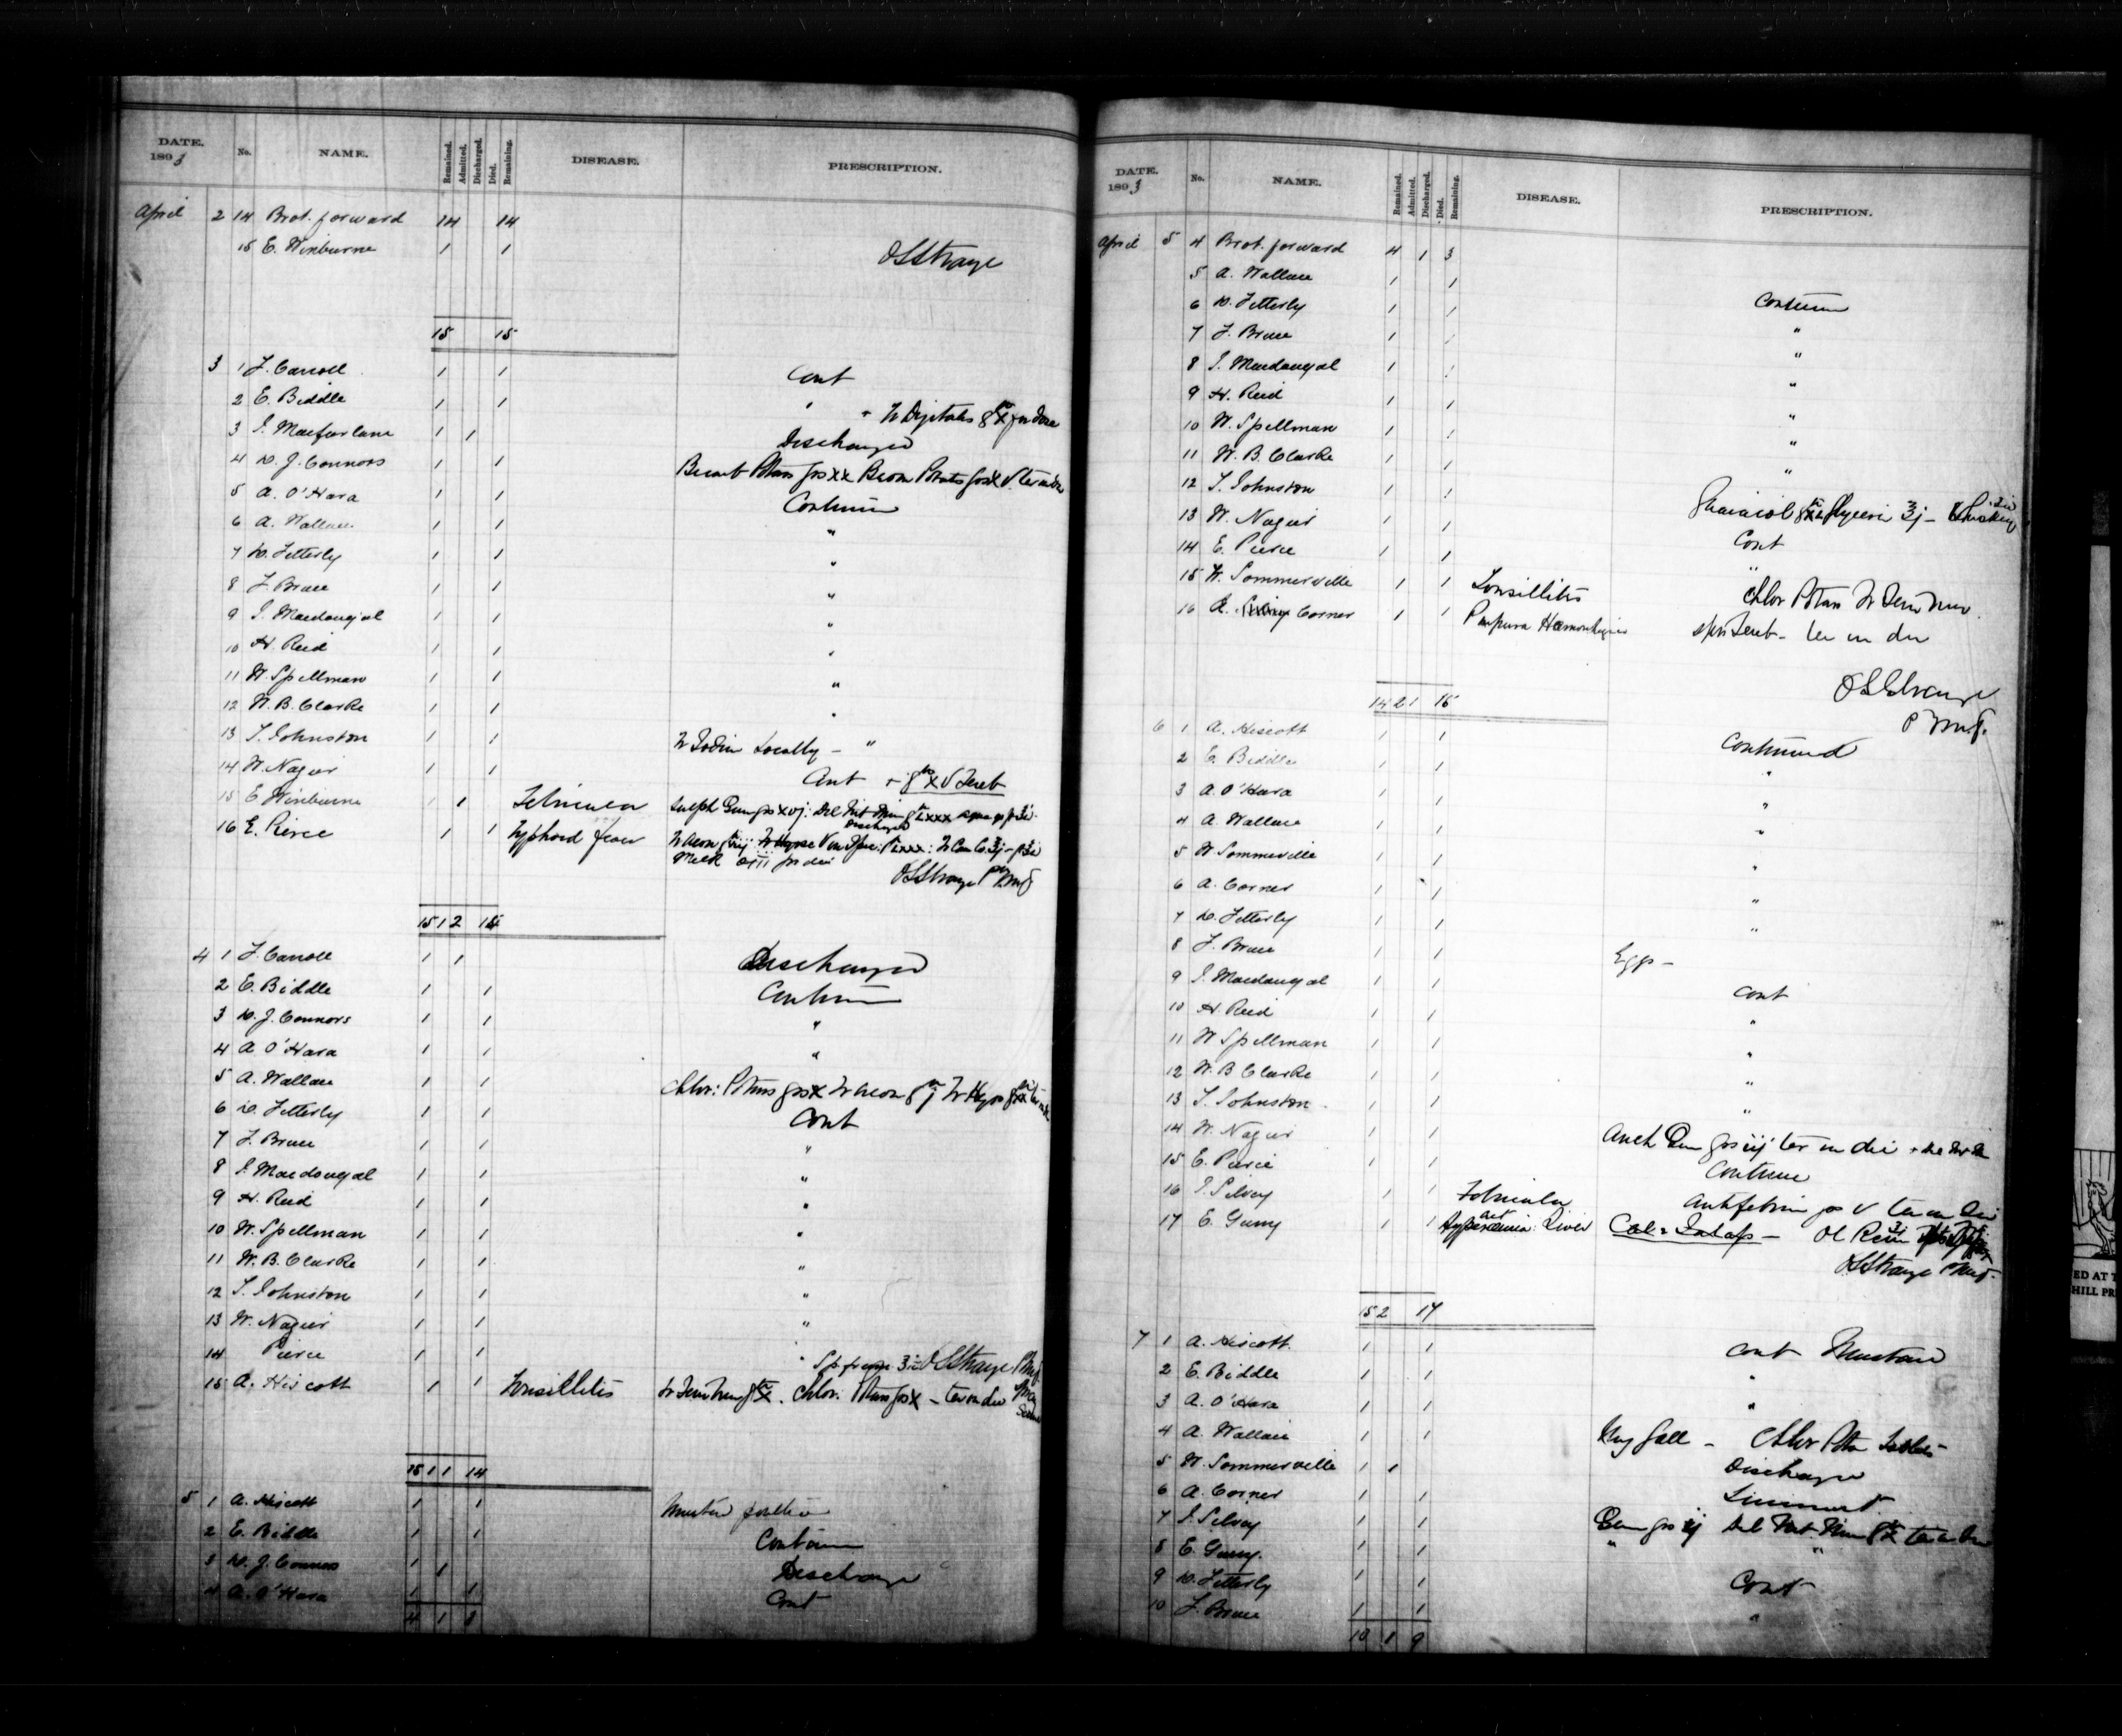 DATE. 1893 No. NAME. Remained. Admitted. Discharged. Died. Remaining. DISEASE. PRESCRIPTION.
April 2 14 Brot. forward 14 14
15 E. Winburne 1 1
OSStrange
15 15
3 1 J. Carroll 1 1 Cont
2 E. Biddle 1 1 " + Tr Digitalis
3 J. Macfarlane 1 1 Discharged
4 D. J. Connors 1 1 Bicarb Potass grs xx Brom Potass grs x
5 A. O'Hara 1 1 Continue
6 A. Wallace 1 1 "
7 D. Fetterly 1 1 "
8 J. Bruce 1 1 "
9 J. Macdougal 1 1 "
10 H. Reid 1 1 "
11 W. Spellman 1 1 "
12 W. B. Clarke 1 1 "
13 T. Johnston 1 1 Tr Iodin Locally - "
14 W. Nagur 1 1 Cont +
15 E Winburne 1 1 Febricula Discharged
16 E. Pierce 1 1 Typhoid fever
Milk
OSStrange
15 1 2 14
4 1 J. Carroll 1 1 Discharged
2 E. Biddle 1 1 Continue
3 D. J. Connors 1 1 "
4 A. O'Hara 1 1 "
5 A. Wallace 1 1 Chlor: Potass grs x Tr Acon
6 D. Fetterly 1 1 Cont
7 J. Bruce 1 1 "
8 J. Macdougal 1 1 "
9 H. Reid 1 1 "
10 W. Spellman 1 1 "
11 W. B. Clarke 1 1 "
12 T. Johnston 1 1 "
13 W. Nagur 1 1 "
14 Pierce 1 1 " OSStrange
15 A. Hiscott 1 1 Tonsillitis Chlor. Potass grs x - ter in die
15 1 1 14
5 1 A. Hiscott 1 1 Mustard poultice
2 E. Biddle 1 1 Continue
3 D. J. Connors 1 1 Discharge
4 A. O'Hara 1 1 Cont
4 1 3
DATE. 1893 No. NAME. Remained. Admitted. Discharged. Died. Remaining. DISEASE. PRESCRIPTION.
April 5 4 Brot. forward 4 1 3
5 A. Wallace 1 1
6 D. Fetterly 1 1 Continue
7 J. Bruce 1 1 "
8 J. Macdougal 1 1 "
9 H. Reid 1 1 "
10 W. Spellman 1 1 "
11 W. B. Clarke 1 1 "
12 T. Johnston 1 1 "
13 W. Nagur 1 1 Guaiacol Glycerin Whiskey
14 E. Pierce 1 1 Cont
15 W. Sommerville 1 1 Tonsillitis Chlor Potass
16 A. Corner 1 1 Purpura Hemorrhagica ter in die
OSStrange
14 2 1 15
6 1 A. Hiscott 1 1 Continued
2 E. Biddle 1 1 "
3 A. O'Hara 1 1 "
4 A. Wallace 1 1 "
5 W Sommerville 1 1 "
6 A. Corner 1 1 "
7 D. Fetterly 1 1 "
8 J. Bruce 1 1 Eggs -
9 J. Macdougal 1 1 Cont
10 H. Reid 1 1 "
11 W Spellman 1 1 "
12 W. B Clarke 1 1 "
13 T. Johnston 1 1 "
14 W. Nagur 1 1 ter in die
15 E. Pierce 1 1 Continue
16 J. Silvey 1 1 Febricula Antifebrin grs v ter in die
17 E. Gumy 1 1 Hyperemia: Liver Ol Ricini
OSStrange
15 2 17
7 1 A. Hiscott 1 1 Cont Mustard
2 E. Biddle 1 1 "
3 A. O'Hara 1 1 "
4 A. Wallace 1 1 Chlor Potass
5 W. Sommerville 1 1 Discharge
6 A. Corner 1 1 Liniment
7 J. Silvey 1 1
8 E. Gumy. 1 1 " "
9 D. Fetterly 1 1 Cont
10 J. Bruce 1 1 "
10 1 9
ED AT T
HILL PR